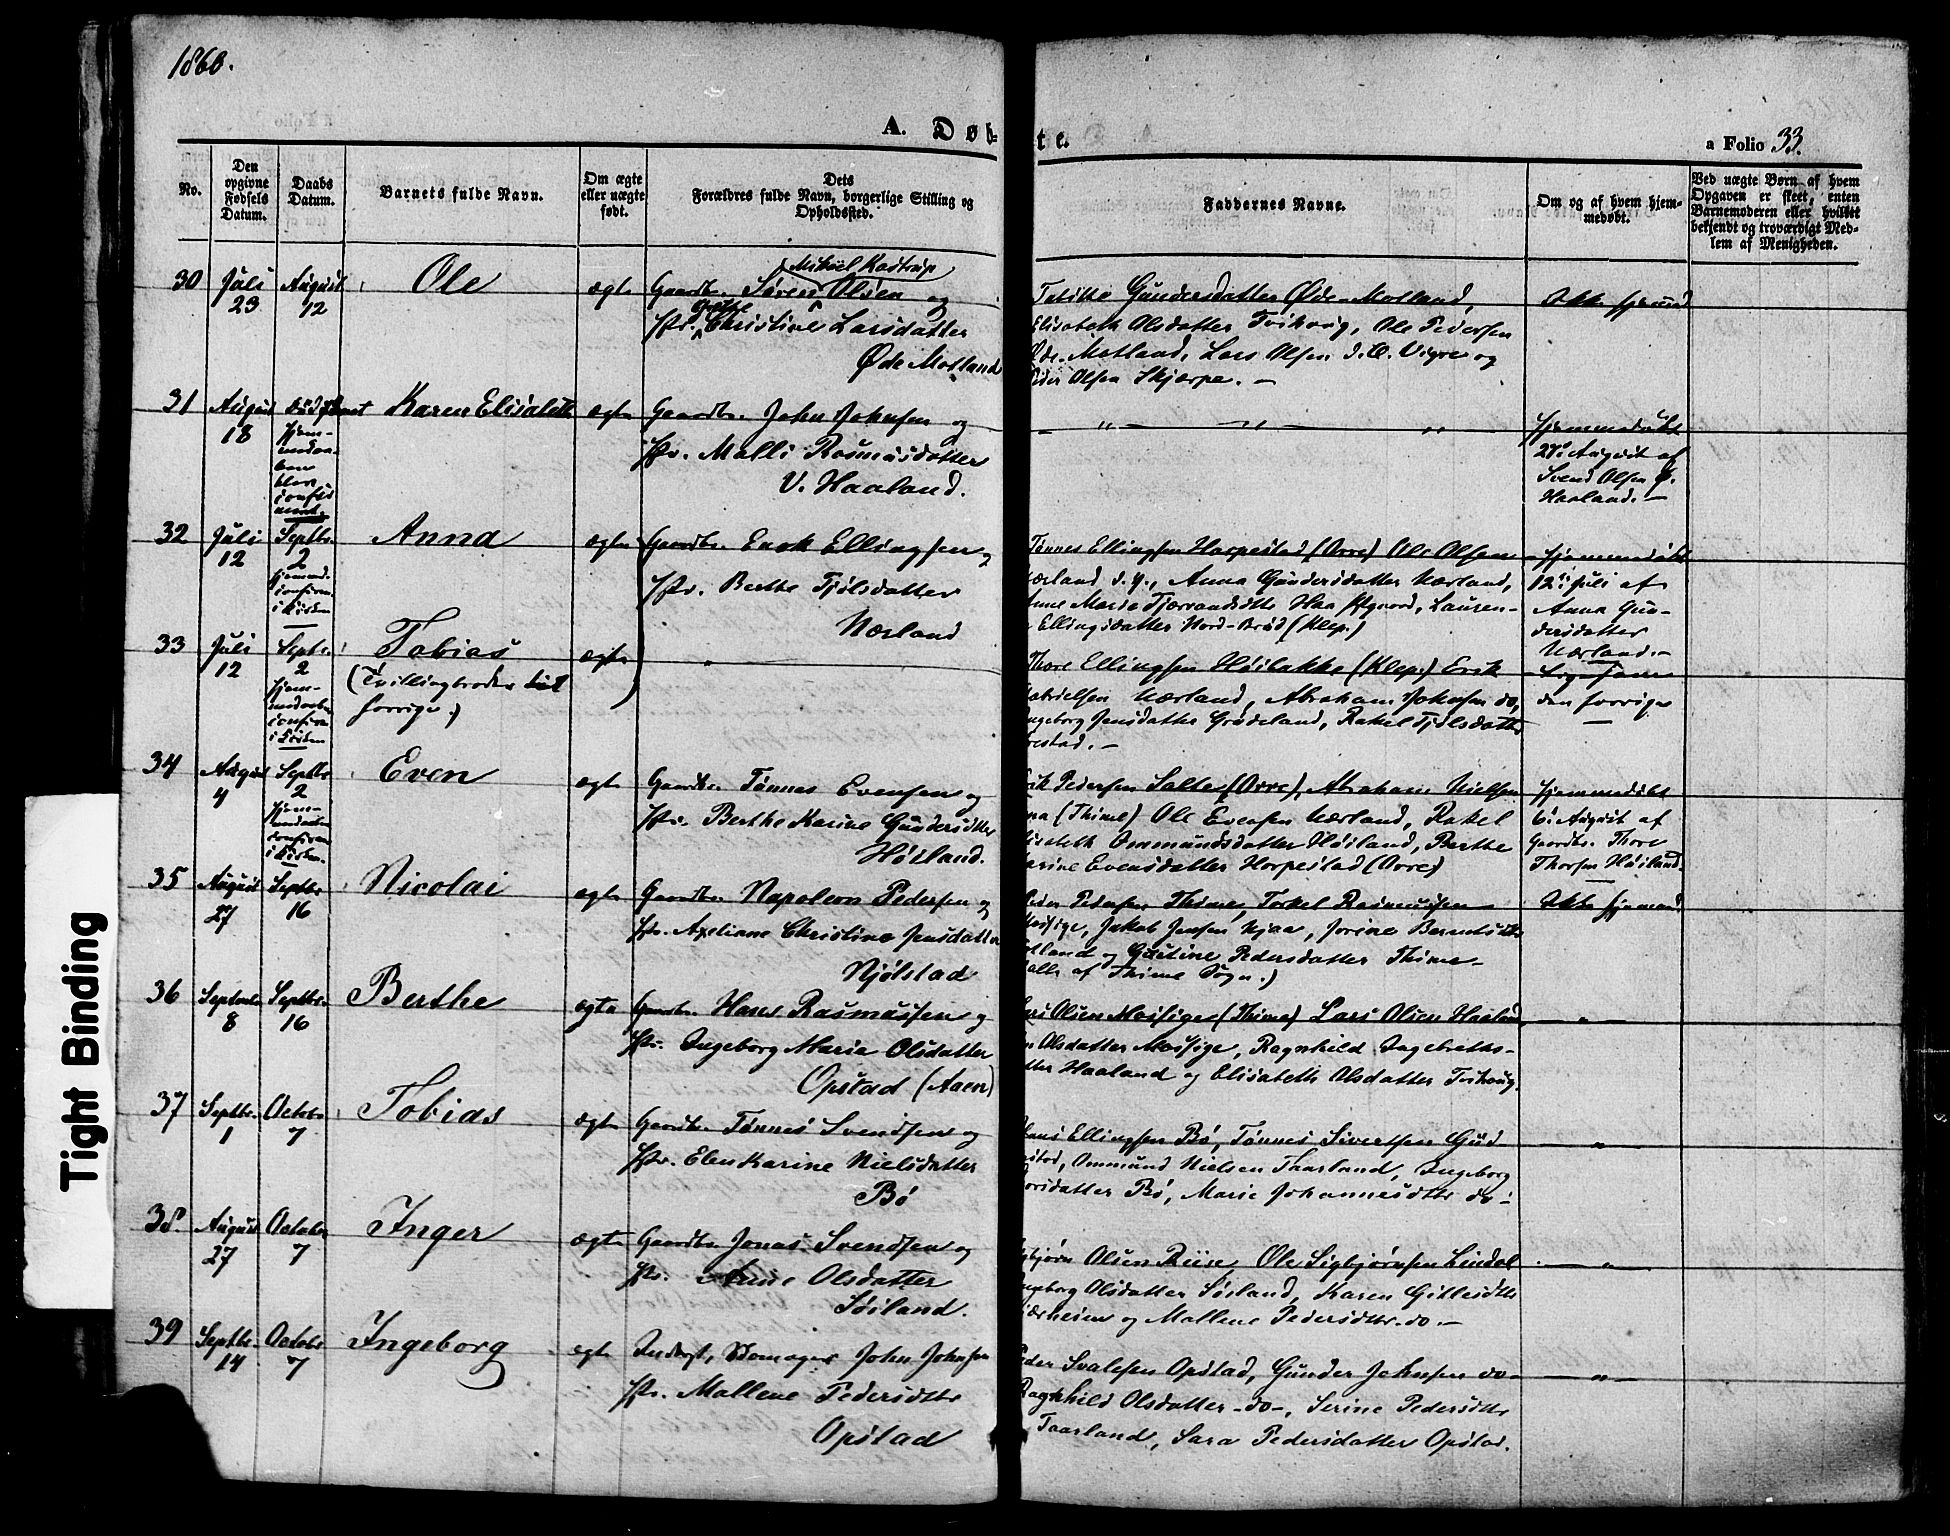 1860.
A. Døb-
te.
a Folio 33.
No.
Den opgivne Fødsels Datum.
Daabs Datum.
Barnets fulde Navn.
Om ægte eller uægte født.
Dets Forældres fulde Navn, borgerlige Stilling og Opholdssted.
Faddernes Navne.
Om og af hvem hjemmedøbt.
Ved uægte Børn af hvem Opgaven er skeet, enten Barnemoderen eller hvilket bekjendt og troværdigt Medlem af Menigheden.
30 Juli 23 August 12 Ole ægte
Mikael Kastrup
Gaardbr. Søren Olsen og
Hst. Christine Larsdatter
Øde Motland
Gundersdatter Øde-Motland,
Elisabeth Olsdatter Tvihoug, Ole Pedersen
Øde-Motland, Lars Olsen Vigre og
Peder Olsen Skjærpe. —
Ikke hjemmd
31 August 18 Karen Elisabeth ægte
Gaardbr. John Johnsen og
Hst. Malli Rasmusdatter
V. Haaland.
— " — " — "
Hjemmedøbt
August af
Svend Olsen
Haaland. —
32 Juli 12 Septbr. 2 Anna ægte
hjemmed.
confirm.
i Kirken
Gaardbr. Enok Ellingsen og
Hst. Berthe Tjølsdatter
Nærland
Tønnes Ellingsen Horpestad (Orre) Ole Olsen
Nærland d. y., Anna Gundersdatter Nærland,
Ane Marie Tjerrandsdtr Haa, Lauren-
Ellingsdatter Nord-Brød (Klep.)
Hjemmedøbt
12 Juli af
Anna Gun-
dersdatter
Nærland. —
33 Juli 12 Septbr. 2 Tobias ægte "
hjem-
confirm
i Kirken
(Tvillingbroder til
forrige.)
Thore Ellingsen Høibakke (Klep.) Erik
Gabrielsen Nærland, Abraham Johnsen do,
Ingeborg Jensdatter Grødeland, Rakel Tjølsdatter
Ligesom
den forrige
—
34 August 4 Septbr 2 Even ægte
i Kirken.
Gaardbr. Tønnes Evensen og
Hst. Berthe Karine Gundersdtter
Høiland.
Erik Pedersen Salte (Orre), Abraham Nielsen
(Thime) Ole Evensen Nærland, Rakel
Elisabeth Ommundsdatter Høiland, Berthe
Karine Evensdatter Horpestad (Orre)
Hjemmedøbt
6 August af
Gaardbr. Thore
Thorsen Høiland.
35 August 27 Septbr 16 Nicolai ægte
Gaardbr. Napoleon Pedersen og
Hst. Axeliane Christine Jensdatter
Njølstad
Peder Pedersen Thime, Torkel Rasmussen
Mossige, Jakob Jensen Njaa, Jorine Berntsdtr
og Gustine Pedersdatter Thime —
(alle af Thime Sogn.)
Ikke hjemmd
36 Septembr 8 Septbr. 16 Berthe ægte
Gaardbr. Hans Rasmussen og
Hst. Ingeborg Marie Olsdatter
Opstad (Aaen)
Lars Olsen Mossige (Thime) Lars Olsen Haaland,
Olsdatter Mossige, Ragnhild Ingebreths-
datter Haaland og Elisabeth Olsdatter Tvihoug.
— " —
37 Septbr. 1 Octobr 7 Tobias ægte
Gaardbr. Tønnes Svendsen og
Hst. Elen Karine Nielsdatter
Bø
Hans Ellingsen Bø, Tønnes Sivertsen Gud-
stad, Ommund Nielsen Thaarland, Ingeborg
Thorsdatter Bø, Marie Johannesdtr do.
— " —
38. August 27 October 7 Inger ægte
Gaardbr. Jonas Svendsen og
Hst. Anne Olsdatter
Søiland.
Sigbjørn Olsen Riise, Ole Sigbjørnsen Lindal
Ingeborg Olsdatter Søiland, Karen Gitlesdtr
og Mallene Pedersdtr. do. —
— " —
39 Septbr. 14 Octobr 7 Ingeborg ægte
Inderst, Skomager John Johnsen
Hst. Mallene Pedersdtr
Opstad
Peder Svalesen Opstad, Gunder Johnsen do —
Ragnhild Olsdatter -do-, Serine Pedersdtr
Taarland, Sara Pedersdatter Opstad.
— " —
Tight Binding